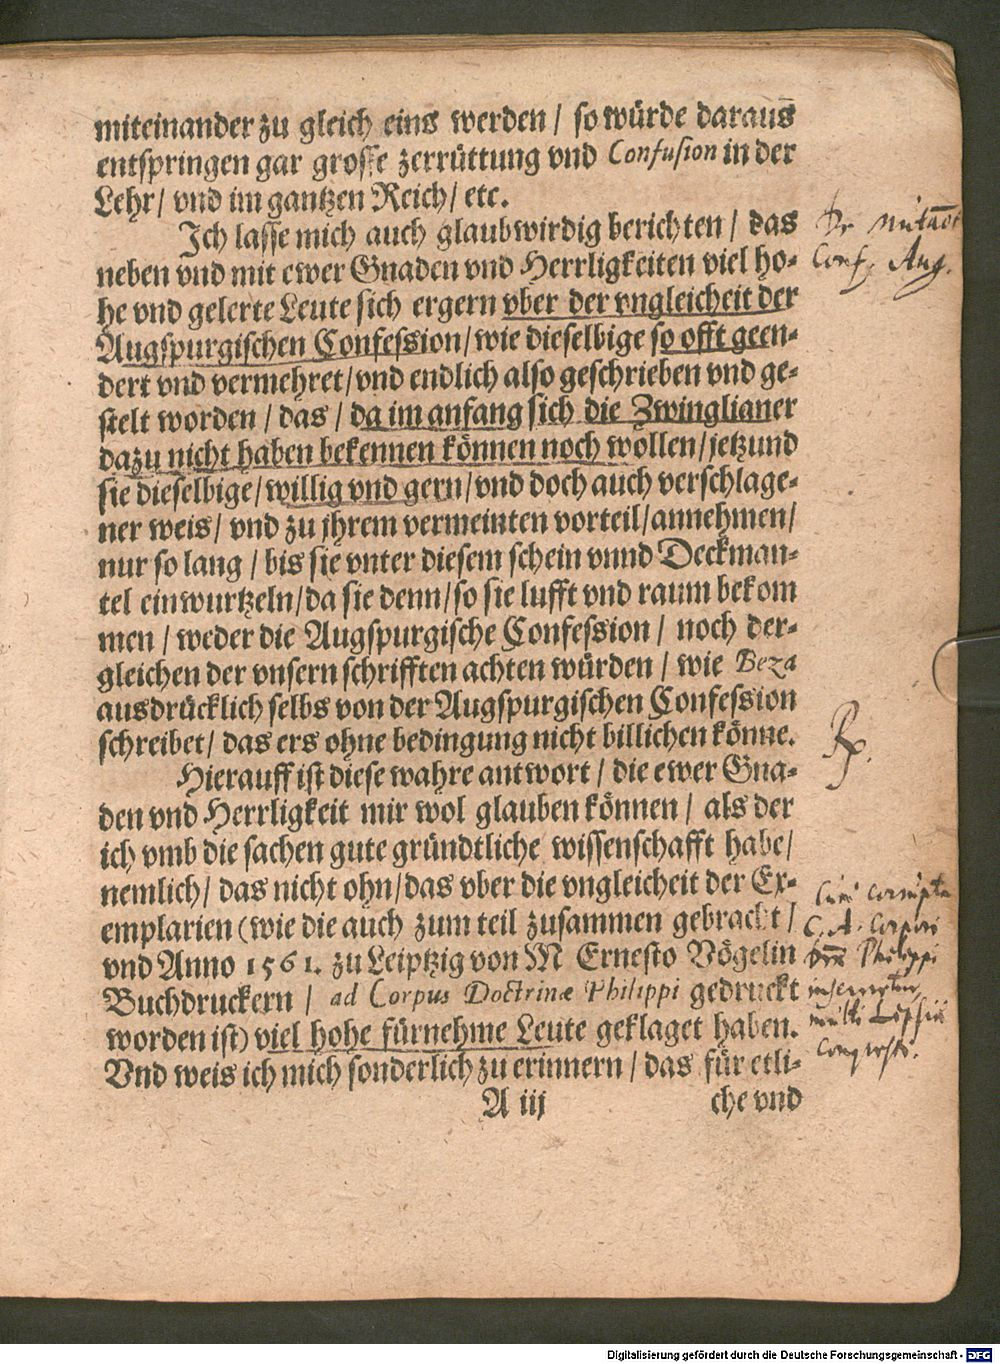 miteinander zu gleich eins werden / so würde darauß
entspringen gar grosse zerrüttung vnd Confusion in der
Lehr / vnd im gantzen Reich / etc.
Ich lasse mich auch glaubwirdig berichten / das
neben vnd mit ewer Gnaden vnd Herrligkeiten viel ho-
he vnd gelerte Leute sich ergern vber der vngleicheit der
Augspurgischen Confession / wie dieselbige so offt geen-
dert vnd vermehret / vnd endlich also geschrieben vnd ge-
stelt worden / das / da im anfang sich die Zwinglianer
dazu nicht haben bekennen können noch wollen / jetzund
sie dieselbige / willig vnd gern / vnd doch auch verschlage-
ner weis / vnd zu jhrem vermeinten vorteil / annehmen /
nur so lang / bis sie vnter diesem schein vnnd Deckman-
tel einwurtzeln / da sie denn / so sie lufft vnd raum bekom
men / weder die Augspurgische Confession / noch der-
gleichen der vnsern schrifften achten würden / wie Beza
ausdrücklich selbs von der Augspurgischen Confession
schreibet / das ers ohne bedingung nicht billichen könne.
Hierauff ist diese wahre antwort / die ewer Gna-
den vnd Herrligkeit mir wol glauben können / als der
ich vmb die sachen gute gründtliche wissenschafft habe /
nemlich / das nicht ohn / das vber die vngleicheit der Ex-
emplarien (wie die auch zum teil zusammen gebracht /
vnd Anno 1561. zu Leiptzig von M Ernesto Vögelin
Buchdruckern / ad Corpus Doctrinæ Philippi gedruckt
worden ist) viel hohe fürnehme Leute geklaget haben.
Vnd weis ich mich sonderlich zu erinnern / das für etli-
A iij che vnd
Conf. Aug.
C. A.
Philippi
Digitalisierung gefördert durch die Deutsche Forschungsgemeinschaft - DFG